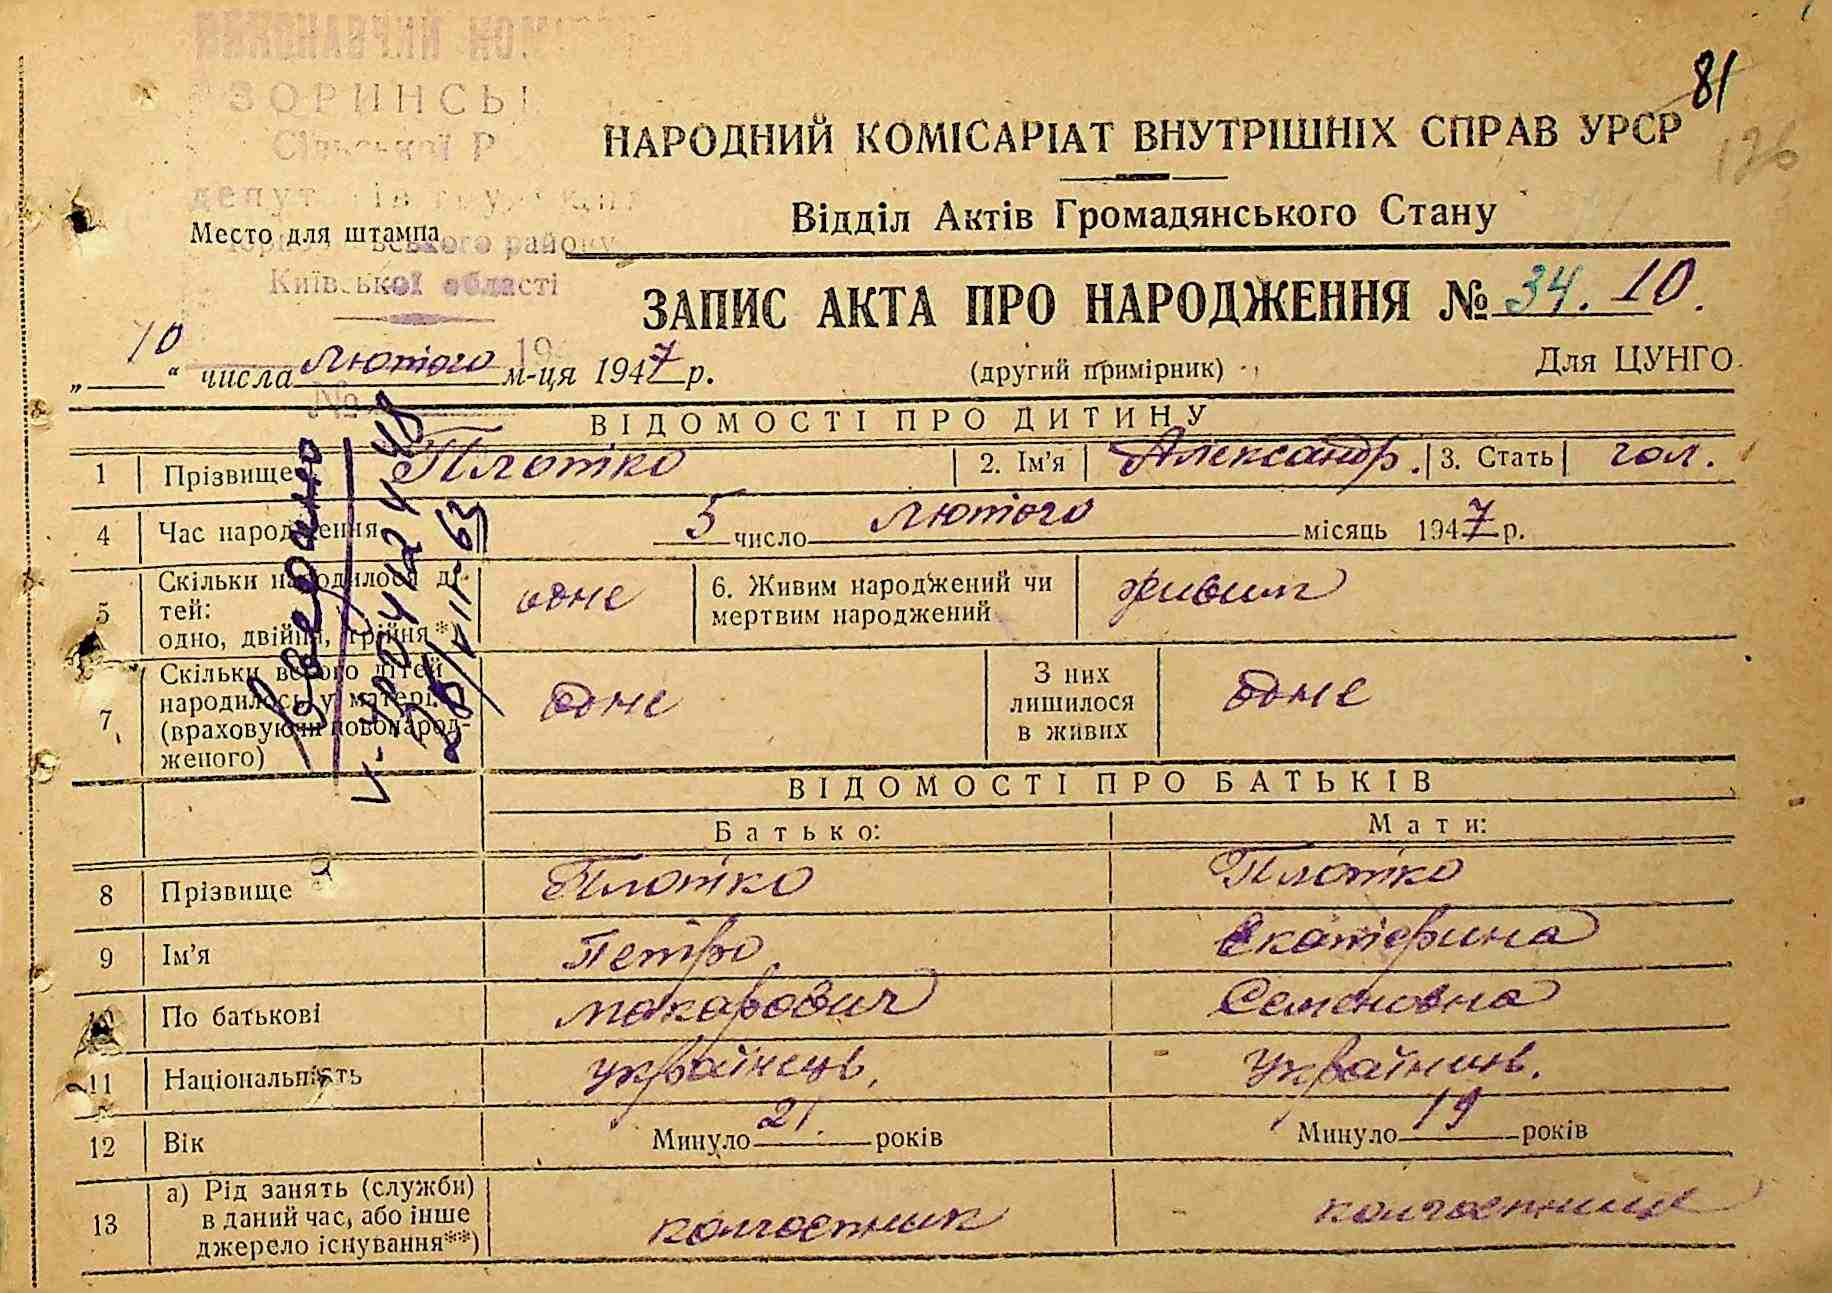 ВИКОНАВЧИЙ КОМ
ЗОРИНСЬ
Сільської Р
Место для штампа
району
Київської області
81
126
НАРОДНИЙ КОМІСАРІАТ ВНУТРІШНІХ СПРАВ УРСР
Відділ Актів Громадянського Стану
ЗАПИС АКТА ПРО НАРОДЖЕННЯ № 34. 10.
„ 10 “ числа лютого м-ця 1947 р. (другий примірник) Для ЦУНГО
№
ВІДОМОСТІ ПРО ДИТИНУ
1 Прізвище Плотко 2. Ім'я Александр. 3. Стать чол.
4 Час народження 5 число лютого місяць 1947 р.
5 Скільки народилося ді-
тей:
одно, двійня, трійня*) одне 6. Живим народжений чи
мертвим народжений живим
7 Скільки всього дітей
народилось у матері
(враховуючи новонарод-
женого) одне З них
лишилося
в живих одне
ВІДОМОСТІ ПРО БАТЬКІВ
Батько: Мати:
8 Прізвище Плотко Плотко
9 Ім'я Петро Екатерина
10 По батькові Макарович Семеновна
11 Національність українець, Українець.
12 Вік Минуло 21. років Минуло 19 років
13 а) Рід занять (служби)
в даний час, або інше
джерело існування**) колгоспник колгоспниця